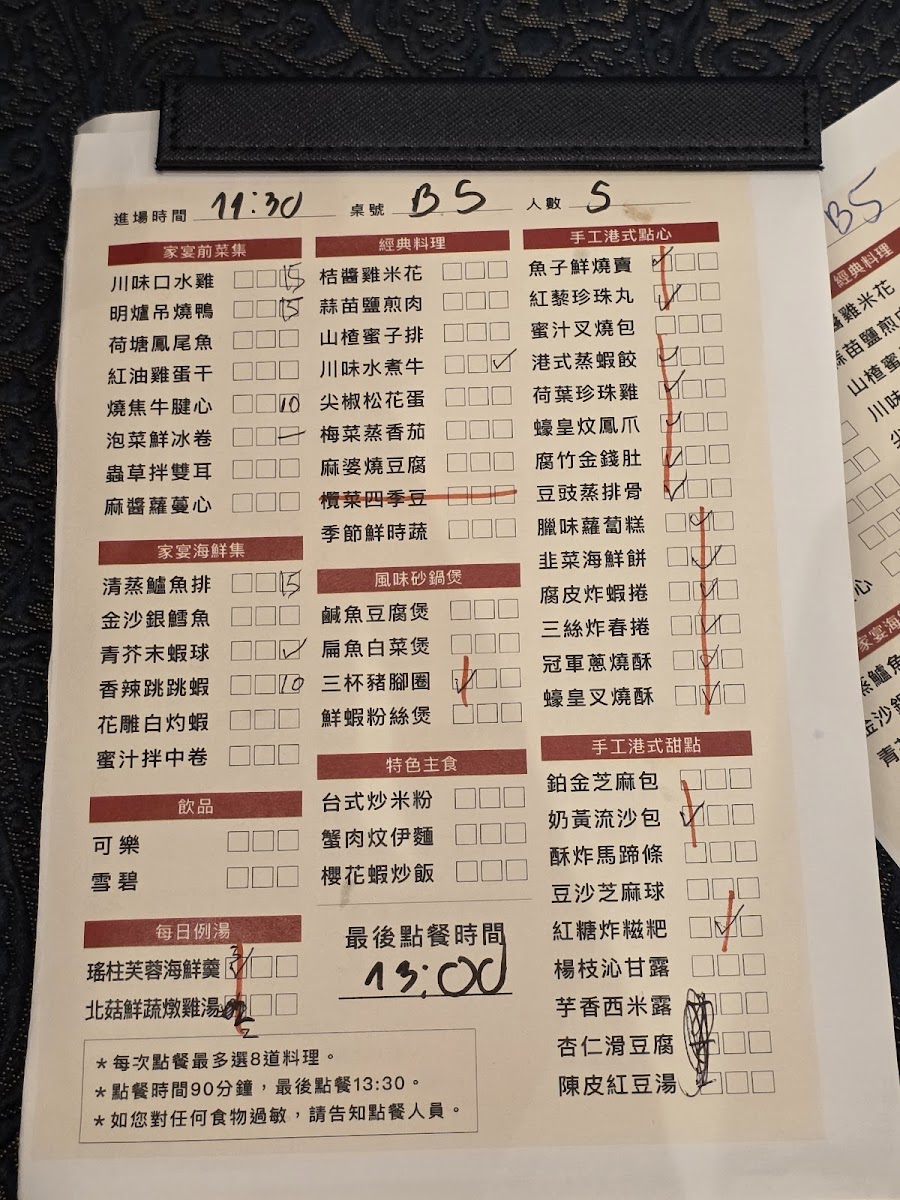 進場時間 11:30 桌號 B5 人數 5
家宴前菜集
川味口水雞 15
明爐吊燒鴨 15
荷塘鳳尾魚
紅油雞蛋干
燒焦牛腱心 10
泡菜鮮冰卷
蟲草拌雙耳
麻醬蘿蔓心
家宴海鮮集
清蒸鱸魚排 15
金沙銀鱈魚
青芥末蝦球
香辣跳跳蝦 10
花雕白灼蝦
蜜汁拌中卷
飲品
可樂
雪碧
每日例湯
瑤柱芙蓉海鮮羹
北菇鮮蔬燉雞湯
經典料理
桔醬雞米花
蒜苗鹽煎肉
山楂蜜子排
川味水煮牛
尖椒松花蛋
梅菜蒸香茄
麻婆燒豆腐
欖菜四季豆
季節鮮時蔬
風味砂鍋煲
鹹魚豆腐煲
扁魚白菜煲
三杯豬腳圈
鮮蝦粉絲煲
特色主食
台式炒米粉
蟹肉炆伊麵
櫻花蝦炒飯
最後點餐時間
13:00
手工港式點心
魚子鮮燒賣
紅藜珍珠丸
蜜汁叉燒包
港式蒸蝦餃
荷葉珍珠雞
蠔皇炆鳳爪
腐竹金錢肚
豆豉蒸排骨
臘味蘿蔔糕
韭菜海鮮餅
腐皮炸蝦捲
三絲炸春捲
冠軍蔥燒酥
蠔皇叉燒酥
手工港式甜點
鉑金芝麻包
奶黃流沙包
酥炸馬蹄條
豆沙芝麻球
紅糖炸糍粑
楊枝沁甘露
芋香西米露
杏仁滑豆腐
陳皮紅豆湯
＊每次點餐最多選8道料理。
＊點餐時間90分鐘，最後點餐13:30。
＊如您對任何食物過敏，請告知點餐人員。
B5
經典料理
雞米花
苗鹽煎
山楂蜜
川味